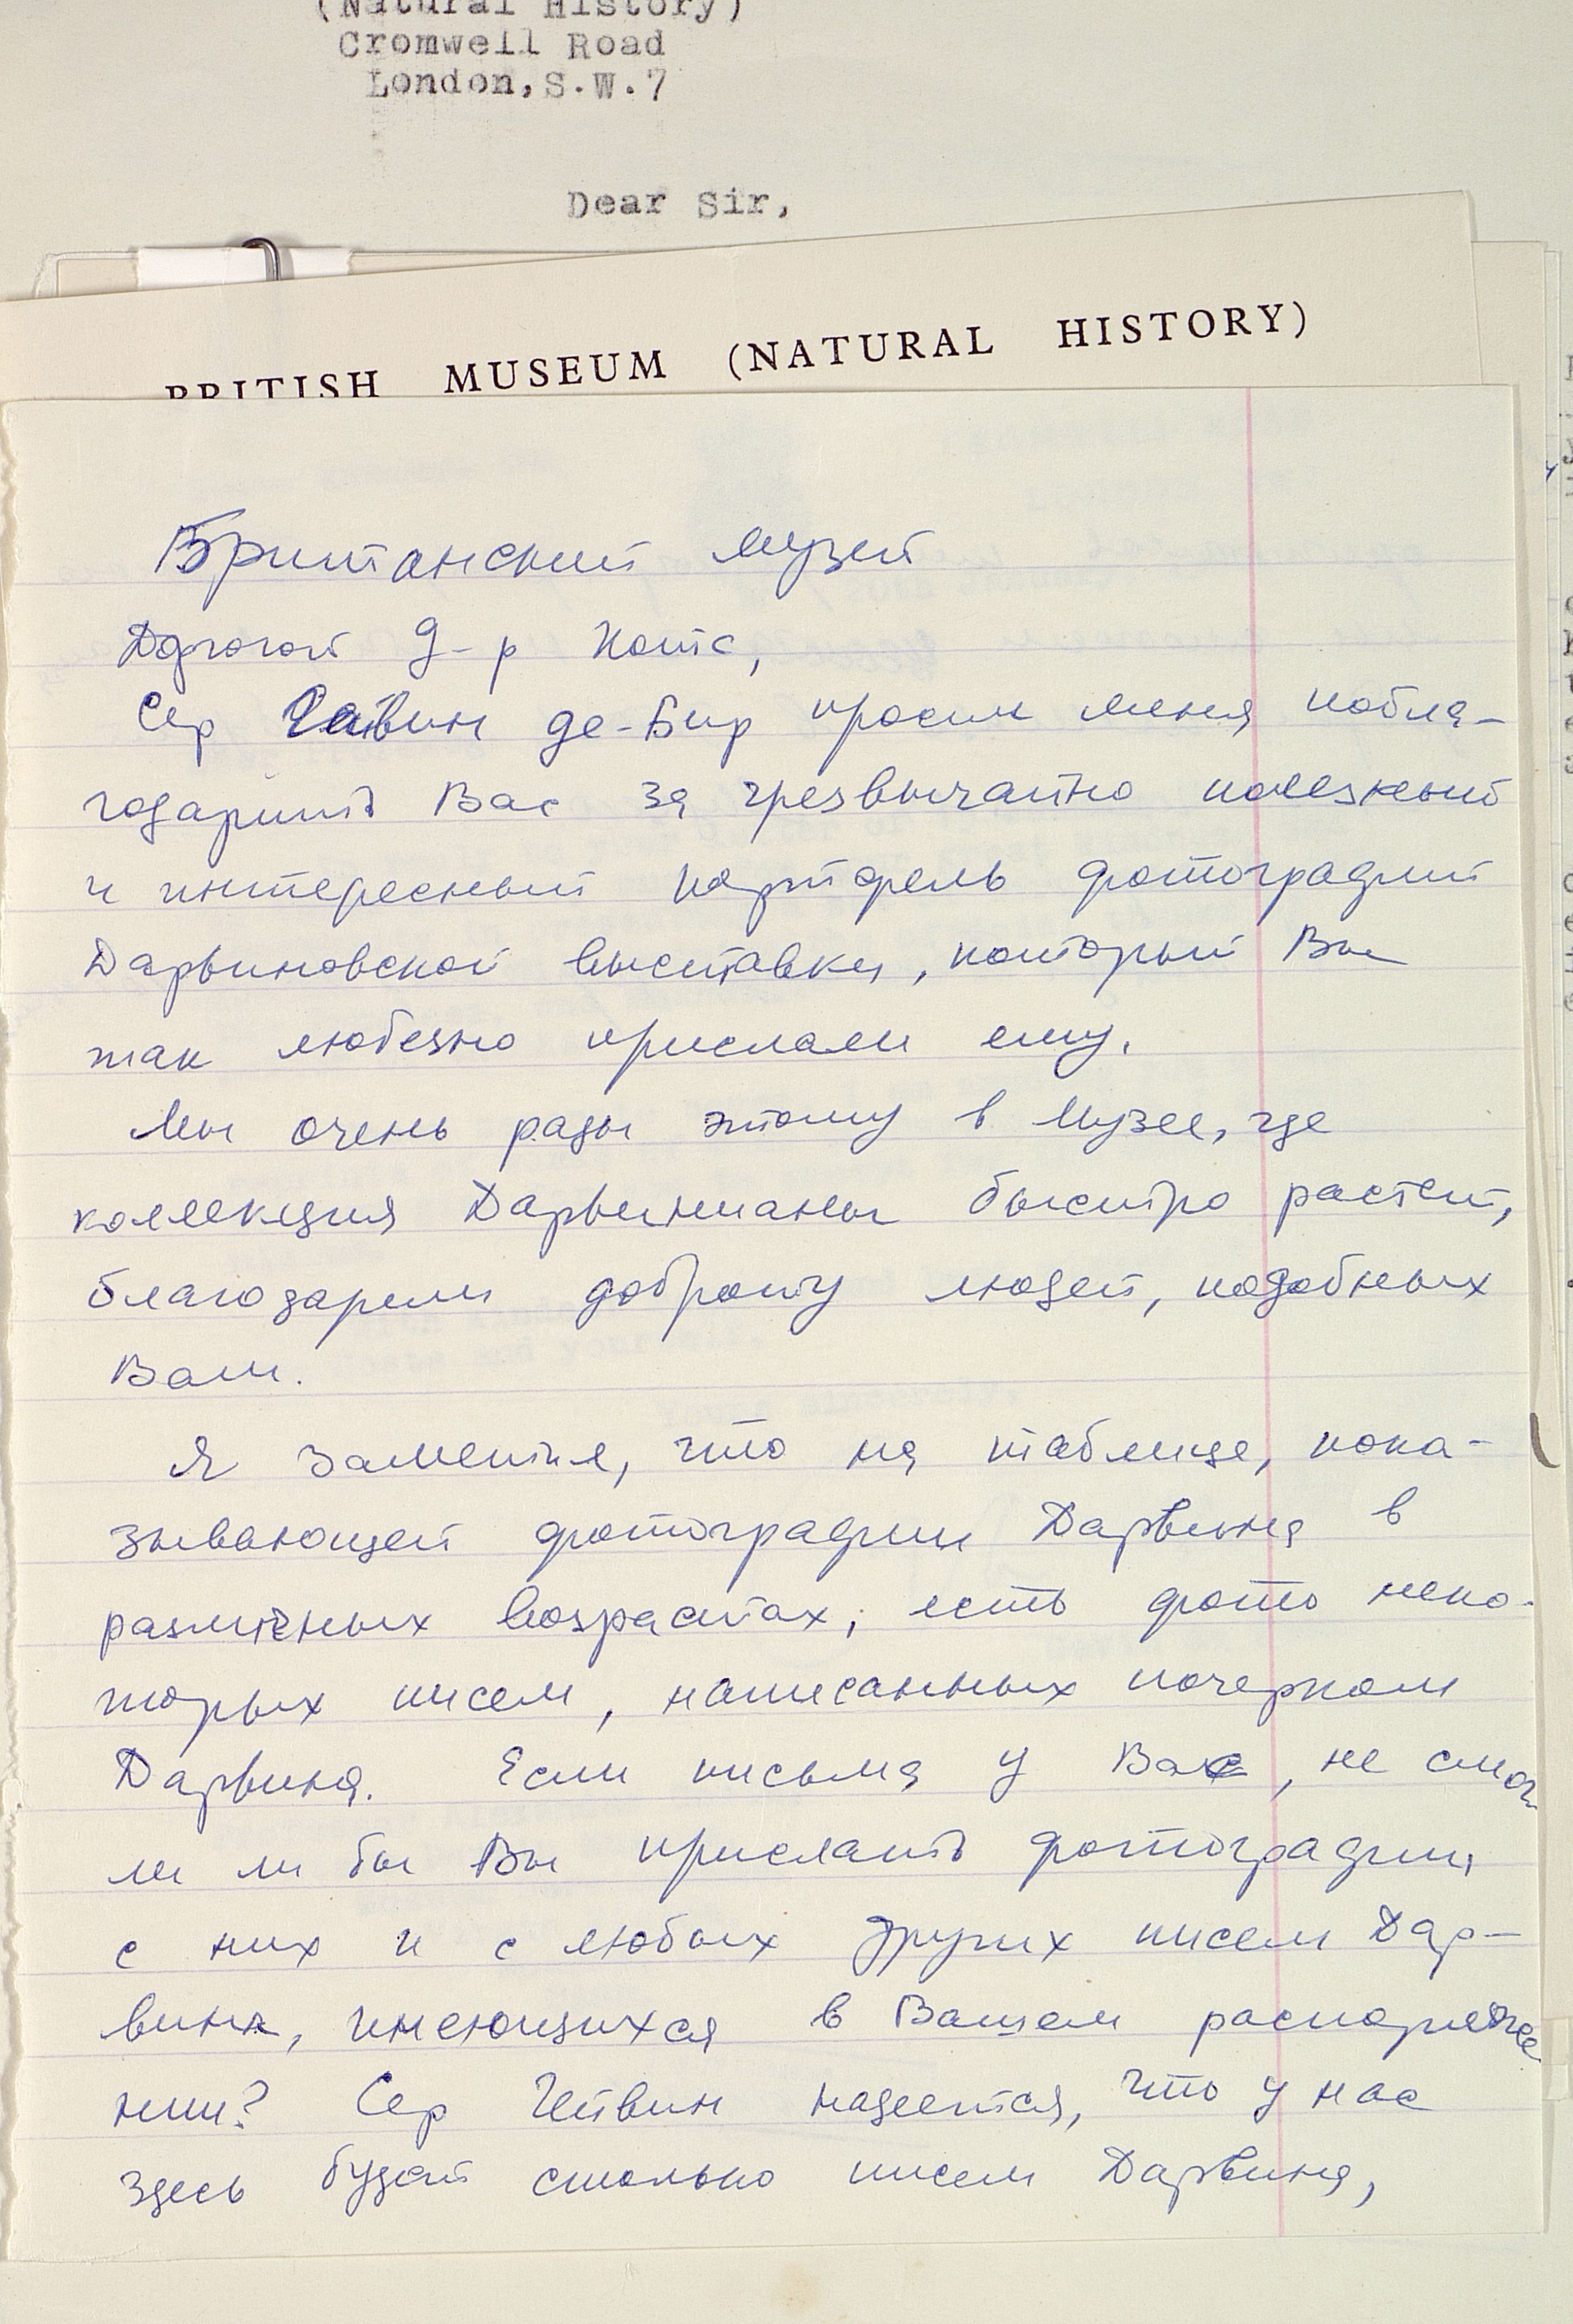 (Natural History)
Cromwell Road
London, S.W.7
Dear Sir,
BRITISH MUSEUM (NATURAL HISTORY)
Британский музей
Дорогой д-р Котс,
Сэр Гэйвин де-Бир просил меня побла-
годарить Вас за чрезвычайно полезный
и интересный портфель фотографий
Дарвиновской выставки, который Вы
так любезно прислали ему.
Мы очень рады этому в Музее, где
коллекция Дарвинианы быстро растет,
благодаря доброту людей, подобных
Вам.
Я заметил, что на таблице, пока-
зывающей фотографии Дарвина в
различных возрастах, есть фото неко-
торых писем, написанных почерком
Дарвина. Если письма у Вас, не смог-
ли ли бы Вы прислать фотографии
с них и с любых других писем Дар-
вина, имеющихся в Вашем распоряже
нии? Сэр Гейвин надеется, что у нас
здесь будет столько писем Дарвина,